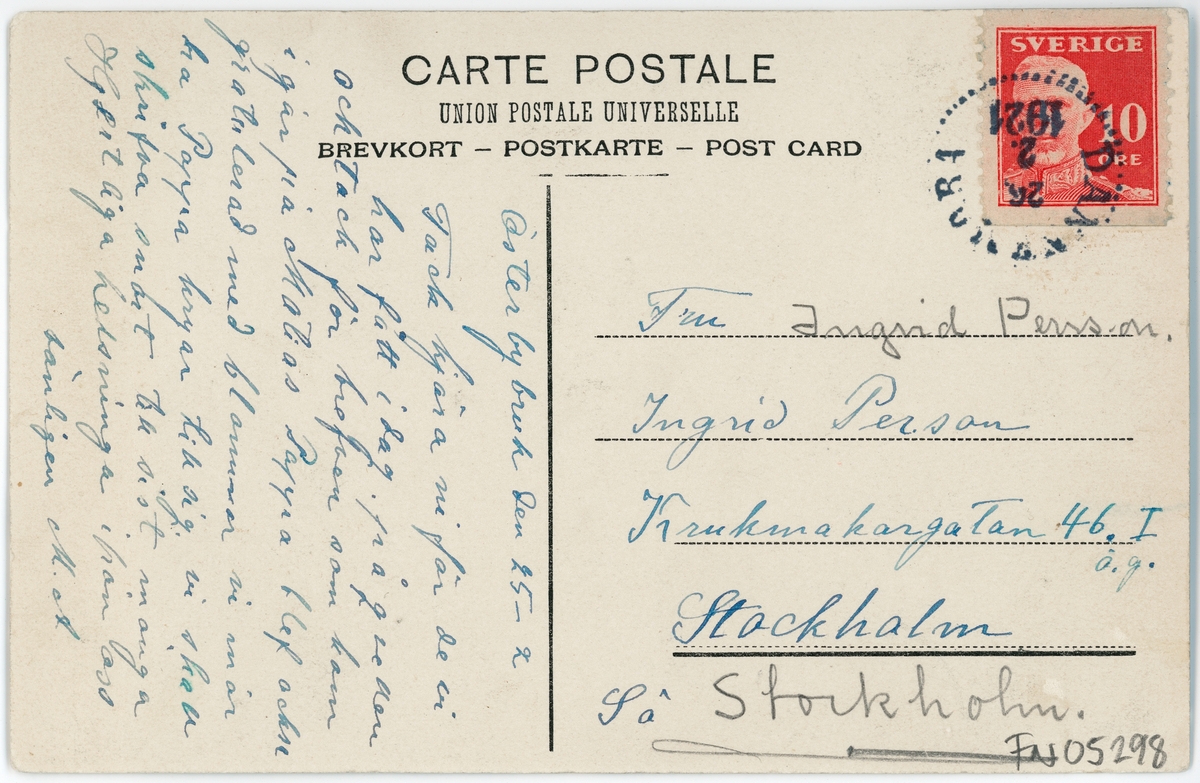 CARTE POSTALE
UNION POSTALE UNIVERSELLE
BREVKORT – POSTKARTE – POST CARD
SVERIGE
10
ÖRE
DANNEMORA 1
26
2
1921
Österbybruk den 25–2
Tack kjära ni för de vi
har fått i dag, frågeden
ock tack för brefven som kom
i går på Matias Pappa blef ockse
gratulerad med blommor vi mår
bra Pappa kryar till sig, vi skall
skrifva snart til sist många
Hjertliga helsninga ifrån oss
vänligen M.A
Fru Ingrid Persson.
Ingrid Person
Krukmakargatan 46, I
ö.g.
Stockholm
Sö Stockholm.
FN05298